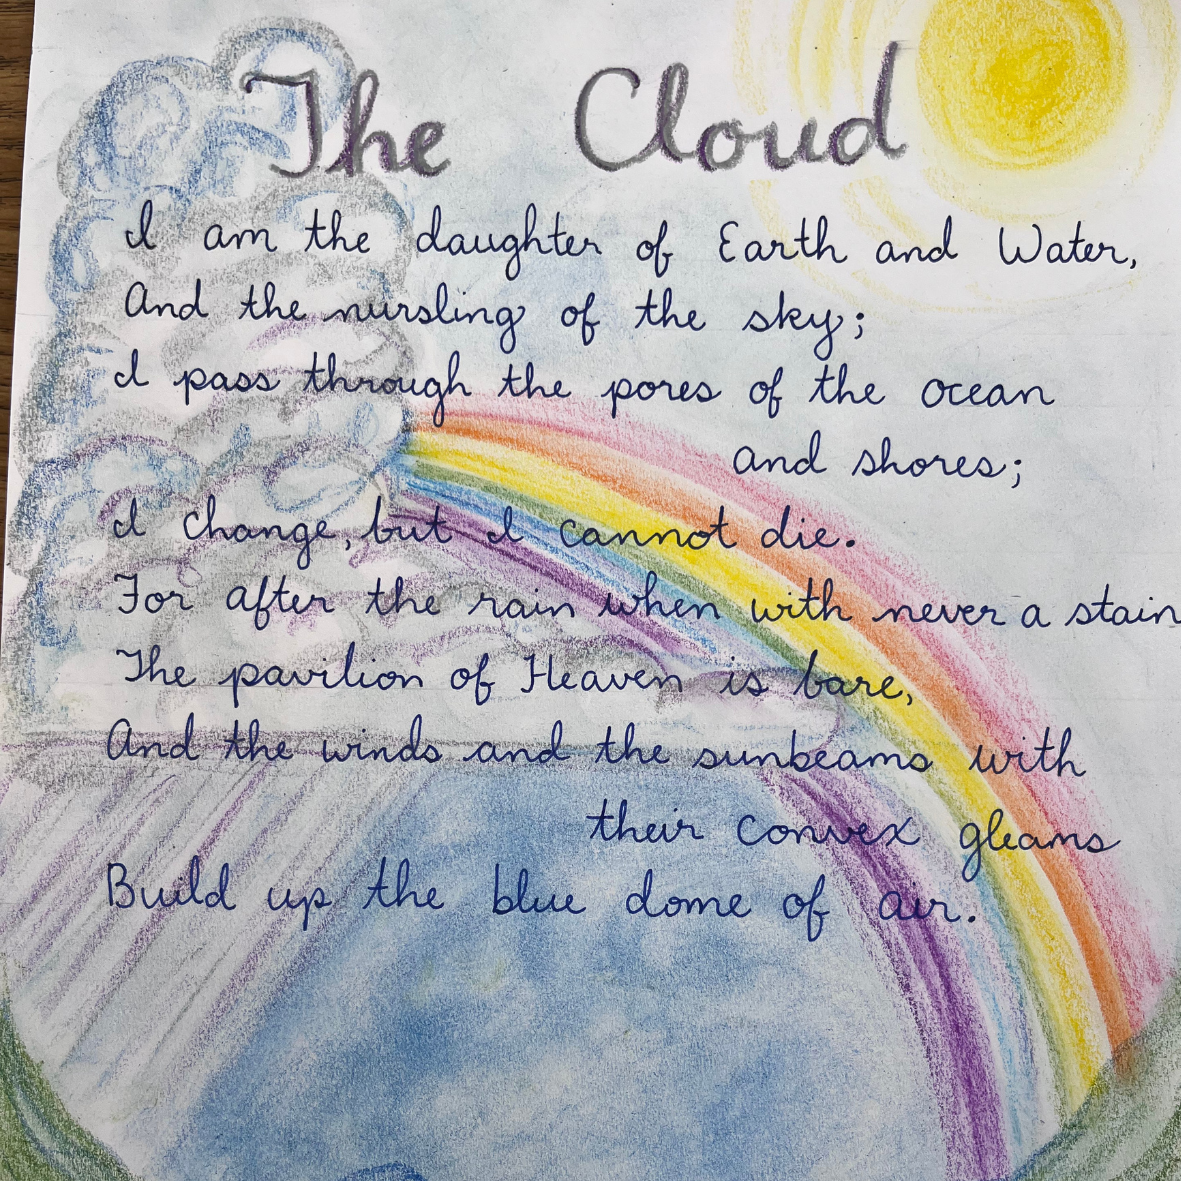 The Cloud
I am the daughter of Earth and Water,
And the nursling of the sky;
I pass through the pores of the ocean
and shores;
I change, but I cannot die.
For after the rain when with never a stain
The pavilion of Heaven is bare,
And the winds and the sunbeams with
their convex gleams
Build up the blue dome of air.